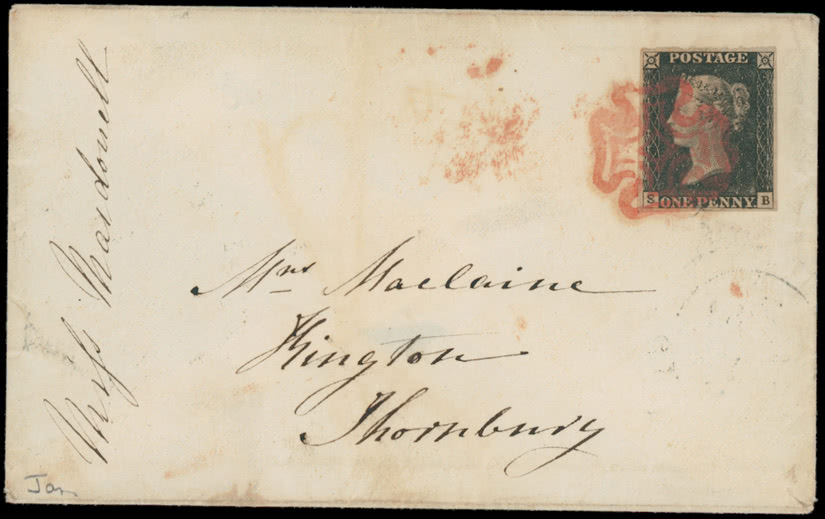 POSTAGE
S ONE PENNY B
Mrs Maclaine
Kington
Thornbury
Miss Macdonell
Jan